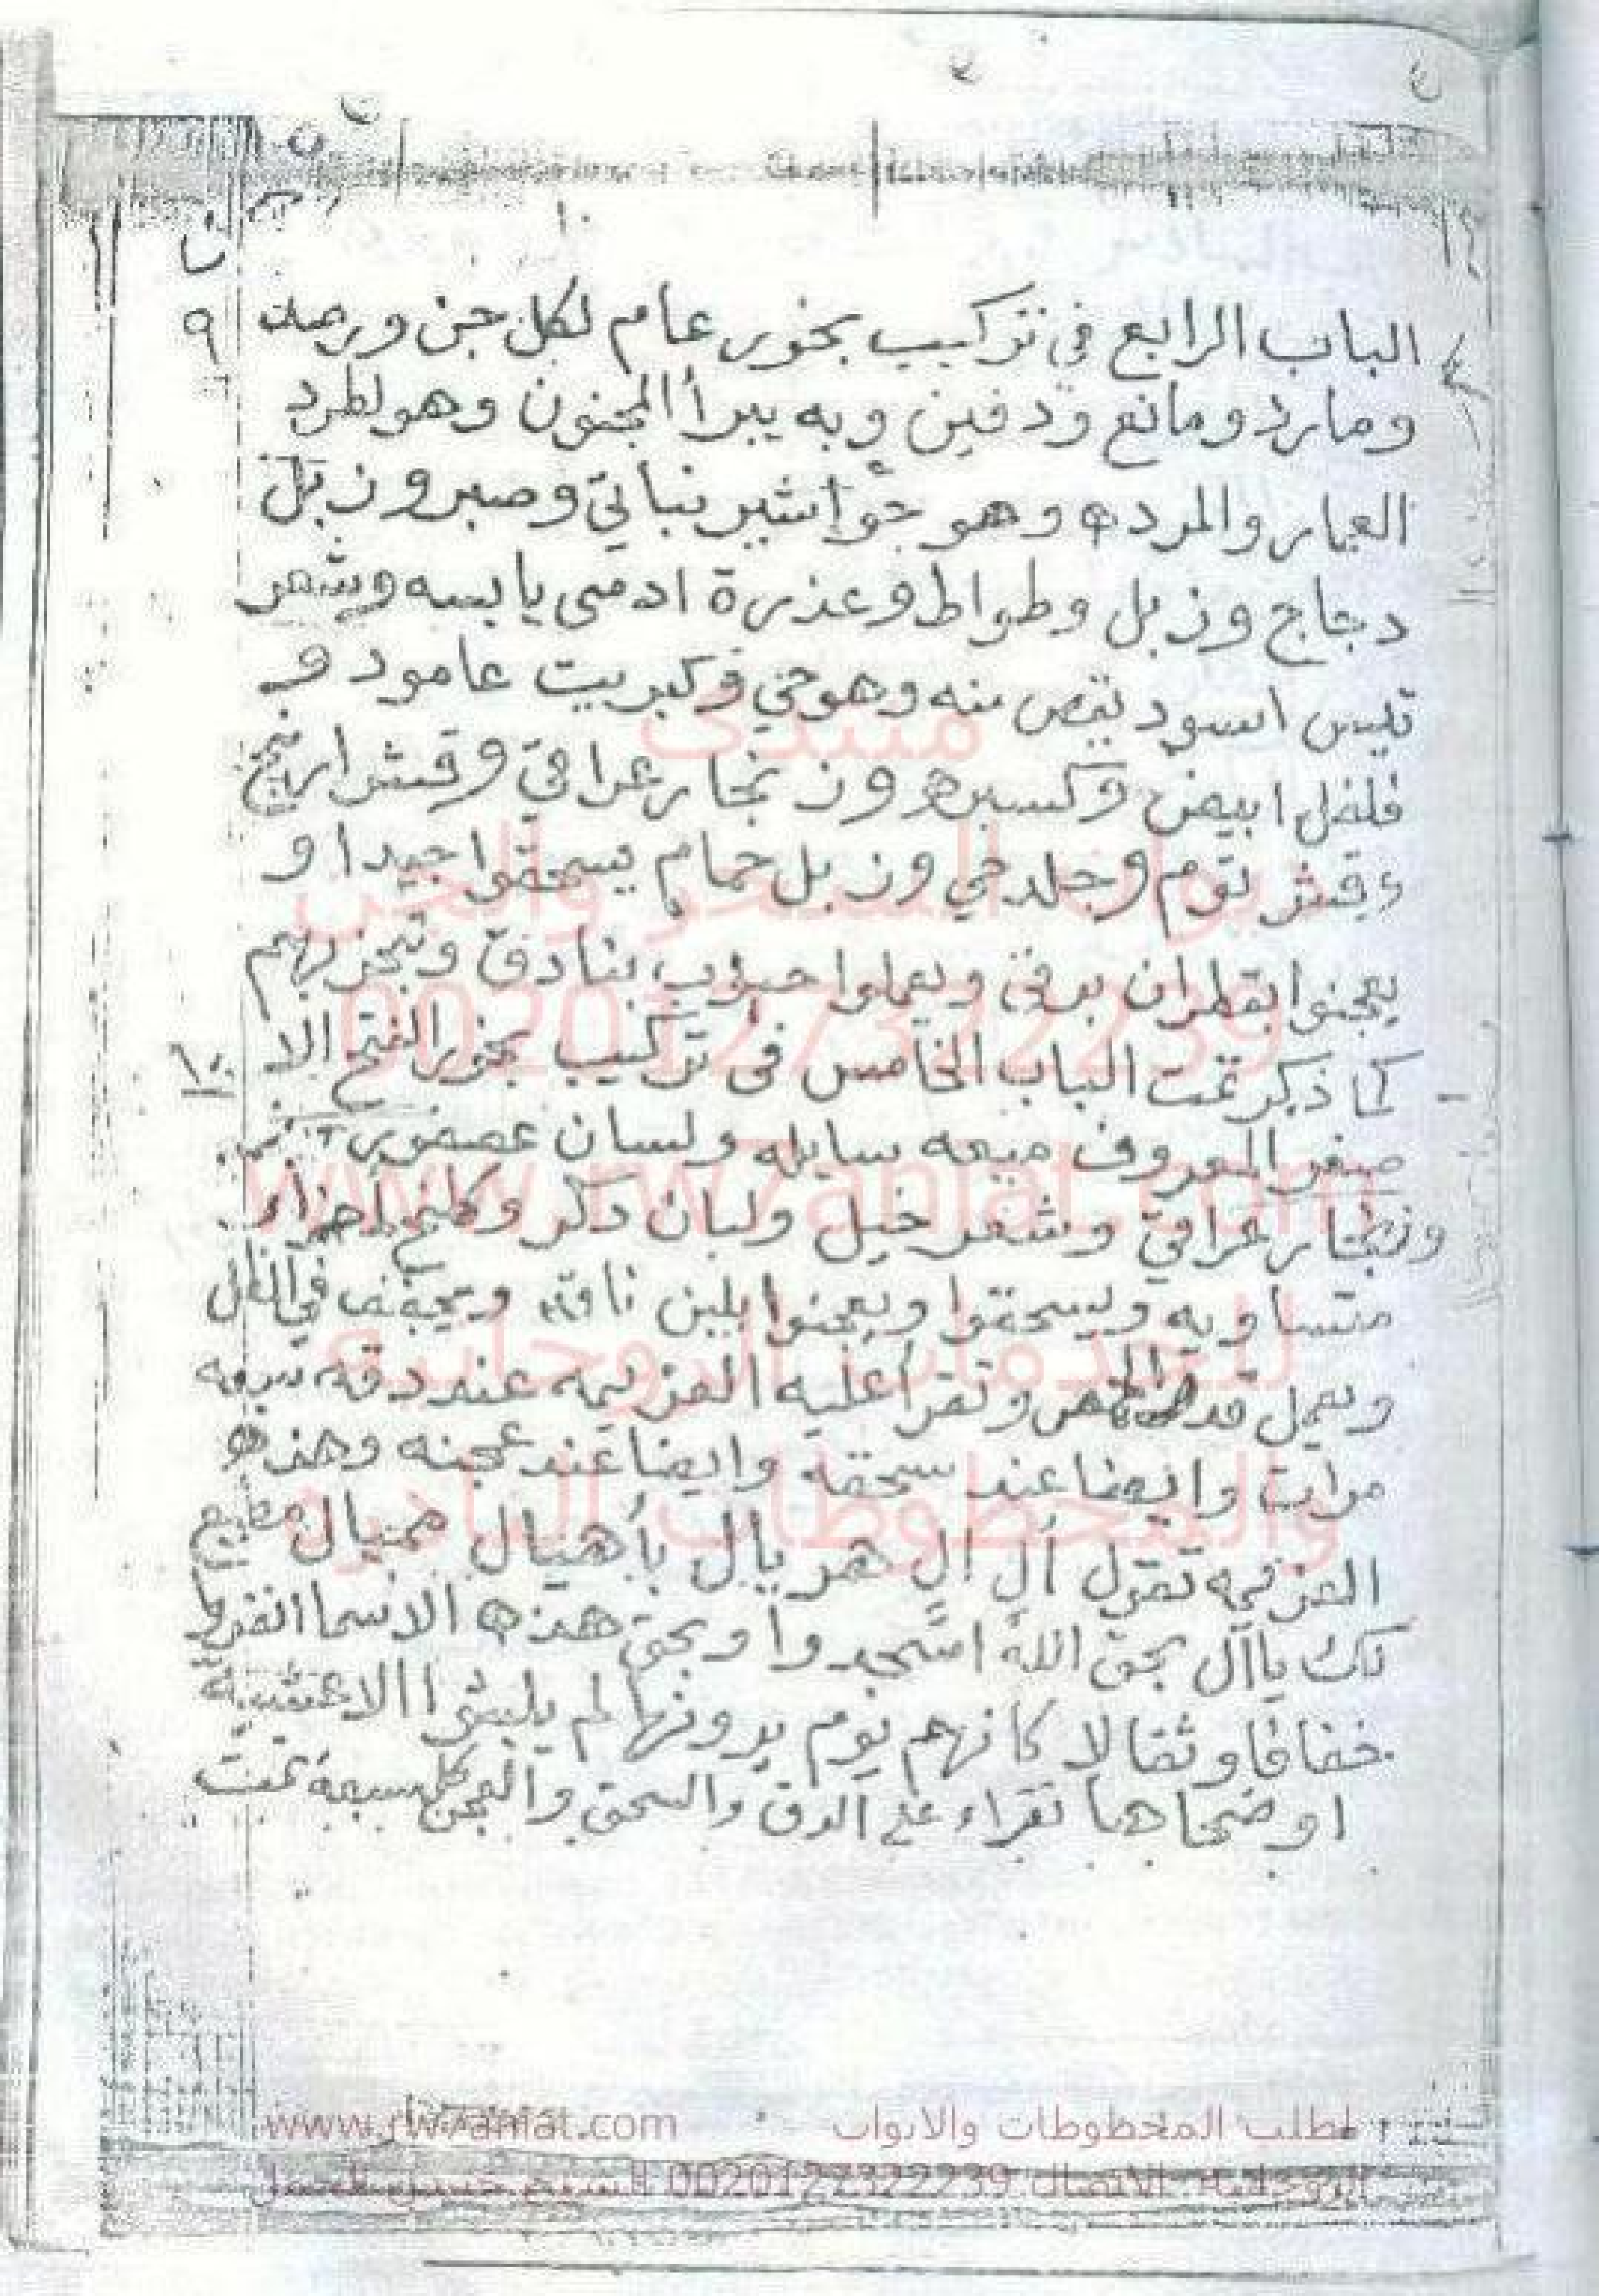 الباب الرابع في تركيب بخور عام لكل جن ورصد
ومارد ومانع ودفين وبه يبرأ المجنون وهو لطرد
العمار والمرده وهو جوأشير نباتي وصبر وزبل
دجاج وزبل وطواط وعذرة ادمى يابسه وشعر
تيس اسود يقص منه وهو حي وكبريت عامود و
فلفل ابيض وكسبره وزنجار عراقي وقشر ارنج
وقشر توم وجلد حي وزبل حمام يسحقوا جيدا و
يعجنوا بقطران برقي ويعملوا حبوب بنادق وتبخر بهم
كما ذكر تمت الباب الخامس فى تركيب بخور الفتح الا
صغر المعروف ميعه سايله ولسان عصفور
وزنجار عراقي وشعر خيل ولبان دكر وكلخ اجزاء
متساويه ويسحقوا ويعجنوا بلبن ناقه ويجفف في الظل
ويعمل وتقرا عليه العزيمه عند دقه سبعه
مرات وايضا عند سحقه وايضا عند عجنه وهذه
العزيمه تقول أل ال هريال بأهيال همنيال مطيع
لك ياآل بحق الله اسجدوا وبحق هذه الاسما انفروا
خفافا وثقالا كانهم يوم يرونها لم يلبثوا الا عشية
او ضحاها تقراء على الدق والسحق والعجن كل سبعة تمت
منتدى
ديوان السحر والجن
0020127322239
www.rw7aniat.com
للخدمات الروحانيه
والمخطوطات النادره
لطلب المخطوطات والابواب
www.rw7aniat.com
الروحانيه الاتصال 0020127322239 الشيخ